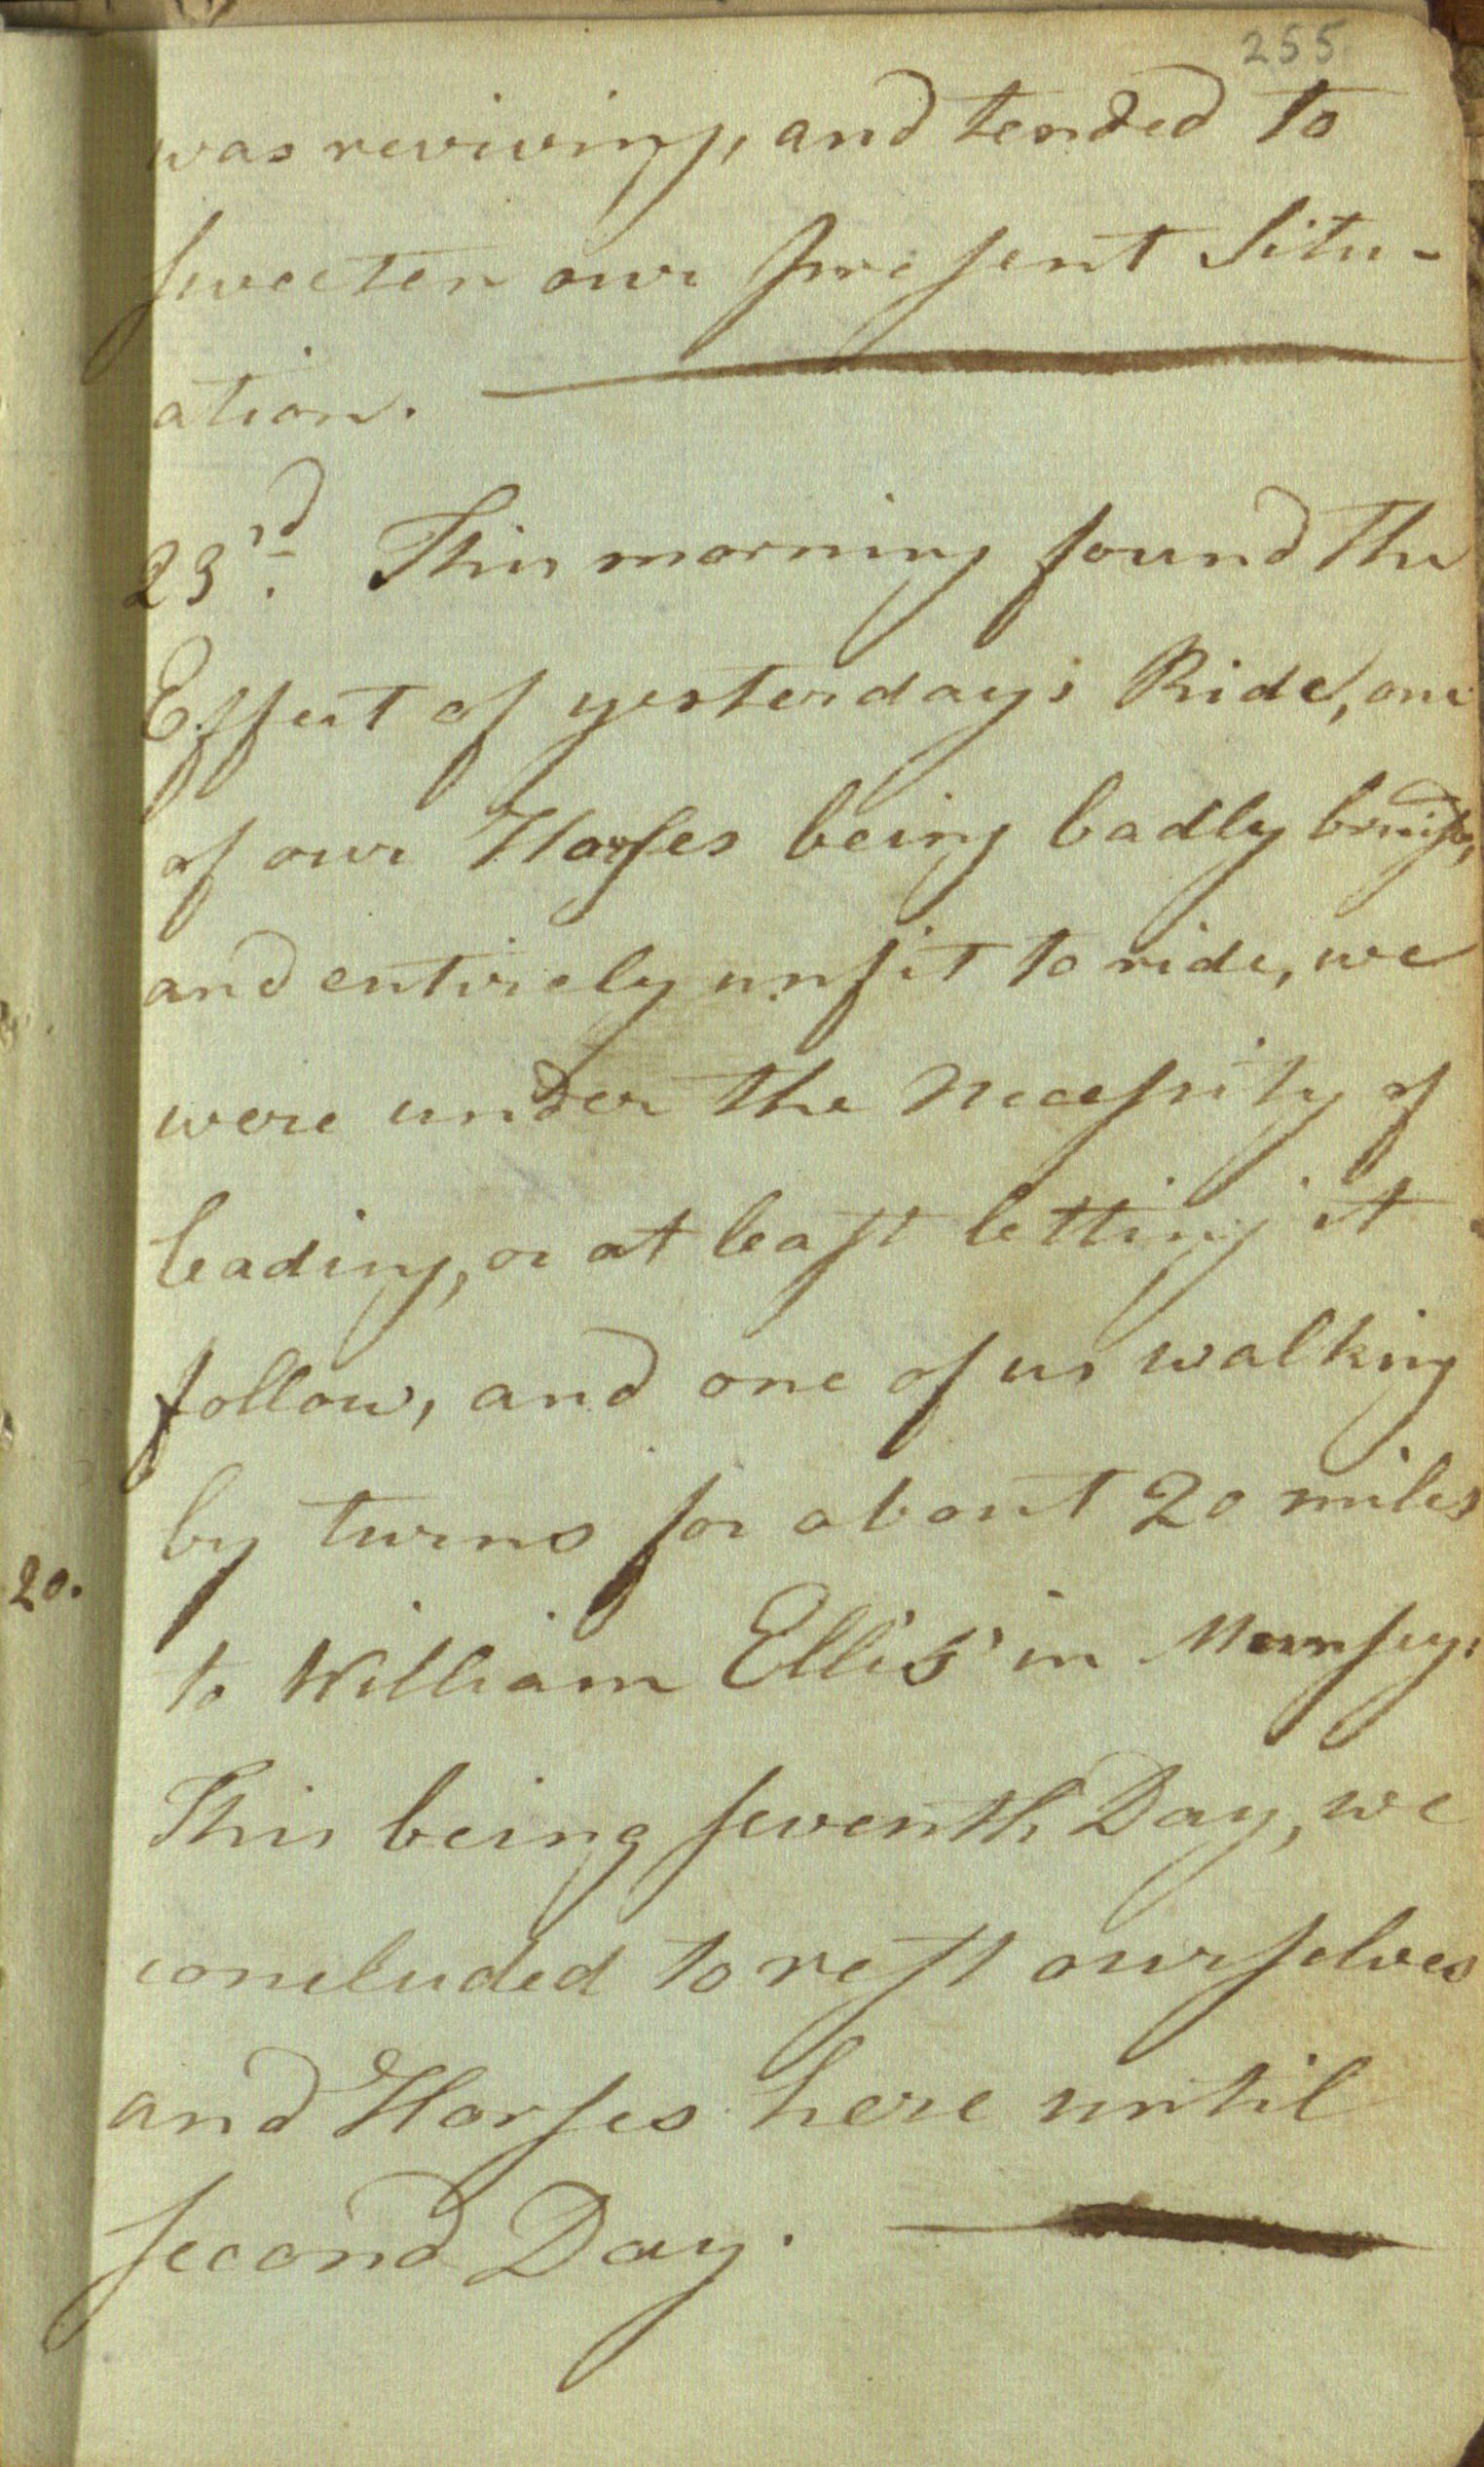 255
was reviving, and tended to
sweeten our present Situ-
ation.
23rd. This morning found the
Effect of yesterdays Ride, one
of our Horses being badly bruisd,
and entirely unfit to ride, we
were under the Necessity of
leading, or at least letting it
follow, and one of us walking
by turns for about 20 miles
20.
to William Ellis' in Munsey:
This being seventh Day, we
concluded to rest ourselves
and Horses here until
second Day.